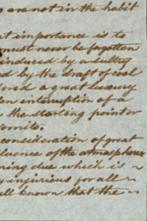 are not in the habit
importance is to
must never be forgotten
induced by a sultry
ed by the draft of cool
ered a great luxury
an interruption of a
the starting point or
vomito.
consideration of great
luence of the atmosphere
ning dew which is
injurious for all
ell known that the